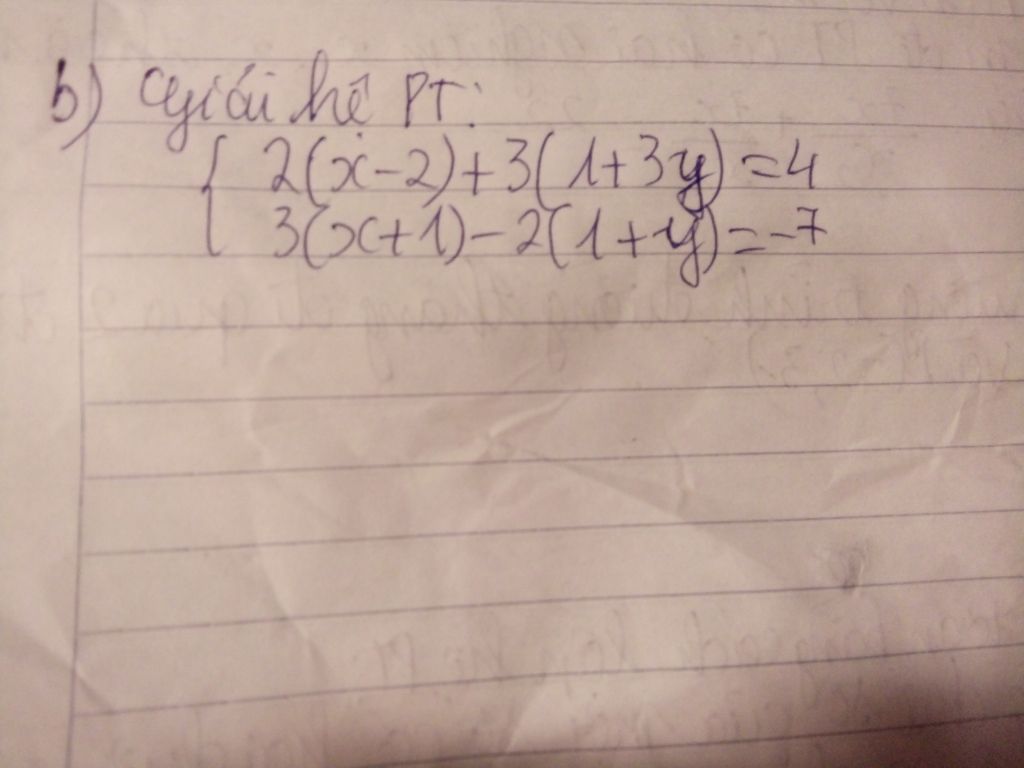 b) Giải hệ PT:
{ 2(x-2)+3(1+3y)=4
3(x+1)-2(1+y)=-7